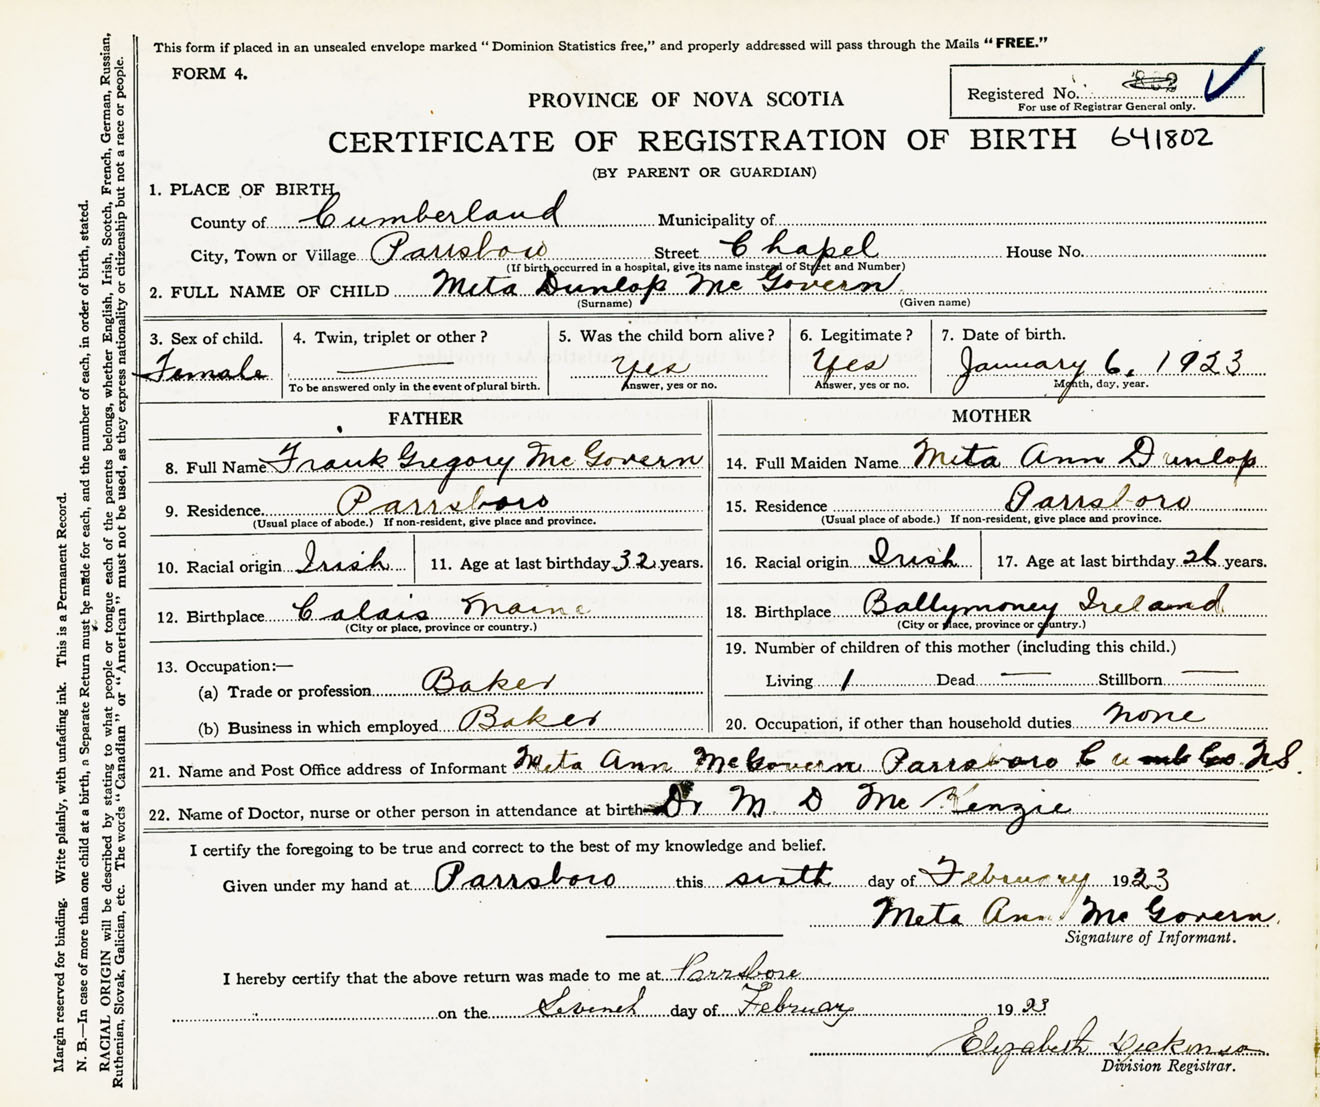 This form if placed in an unsealed envelope marked "Dominion Statistics free," and properly addressed will pass through the Mails "FREE."
FORM 4.
Registered No.
For use of Registrar General only.
PROVINCE OF NOVA SCOTIA
CERTIFICATE OF REGISTRATION OF BIRTH 641802
(BY PARENT OR GUARDIAN)
1. PLACE OF BIRTH
County of Cumberland Municipality of
City, Town or Village Parrsboro Street Chapel House No.
(If birth occurred in a hospital, give its name instead of Street and Number)
2. FULL NAME OF CHILD Meta Dunlop McGovern
(Surname) (Given name)
3. Sex of child. 4. Twin, triplet or other? 5. Was the child born alive? 6. Legitimate? 7. Date of birth.
Female Yes Yes January 6, 1923
To be answered only in the event of plural birth. Answer, yes or no. Answer, yes or no. Month, day, year.
FATHER
8. Full Name Frank Gregory McGovern
9. Residence Parrsboro
(Usual place of abode.) If non-resident, give place and province.
10. Racial origin Irish 11. Age at last birthday 32 years.
12. Birthplace Calais Maine
(City or place, province or country.)
13. Occupation:—
(a) Trade or profession Baker
(b) Business in which employed Baker
MOTHER
14. Full Maiden Name Meta Ann Dunlop
15. Residence Parrsboro
(Usual place of abode.) If non-resident, give place and province.
16. Racial origin Irish 17. Age at last birthday 26 years.
18. Birthplace Ballymoney Ireland
(City or place, province or country.)
19. Number of children of this mother (including this child.)
Living 1 Dead — Stillborn —
20. Occupation, if other than household duties none
21. Name and Post Office address of Informant Meta Ann McGovern Parrsboro Cumb Co. N.S.
22. Name of Doctor, nurse or other person in attendance at birth Dr M D McKenzie
I certify the foregoing to be true and correct to the best of my knowledge and belief.
Given under my hand at Parrsboro this sixth day of February 1923
Meta Ann McGovern
Signature of Informant.
I hereby certify that the above return was made to me at Parrsboro
on the day of February 1923
Elizabeth
Division Registrar.
Margin reserved for binding. Write plainly, with unfading ink. This is a Permanent Record.
N. B.—In case of more than one child at a birth, a Separate Return must be made for each, and the number of each, in order of birth, stated.
RACIAL ORIGIN will be described by stating to what people or tongue each of the parents belongs, whether English, Irish, Scotch, French, German, Russian,
Ruthenian, Slovak, Galician, etc. The words "Canadian" or "American" must not be used, as they express nationality or citizenship but not a race or people.